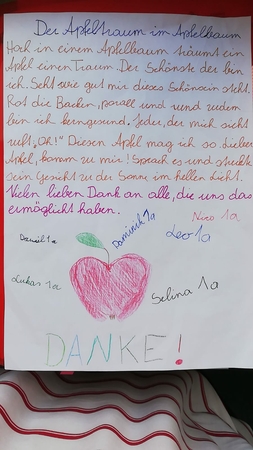 Der Apfeltraum im Apfelbaum
Hoch in einem Apfelbaum träumt ein
Apfel einen Traum. Der Schönste der bin
ich. Seht wie gut mir dieses Schönsein steht.
Rot die Backen, prall und rund zudem
bin ich kerngesund. Jeder, der mich sieht
ruft „Oh!" Diesen Apfel mag ich so. Lieber
Apfel, komm zu mir! Sprach es und streckte
sein Gesicht zu der Sonne im hellen Licht.
Vielen lieben Dank an alle, die uns das
ermöglicht haben.
Nico 1a
Daniel 1a
Dominik 1a
Leo 1a
Lukas 1a
Selina 1a
DANKE!